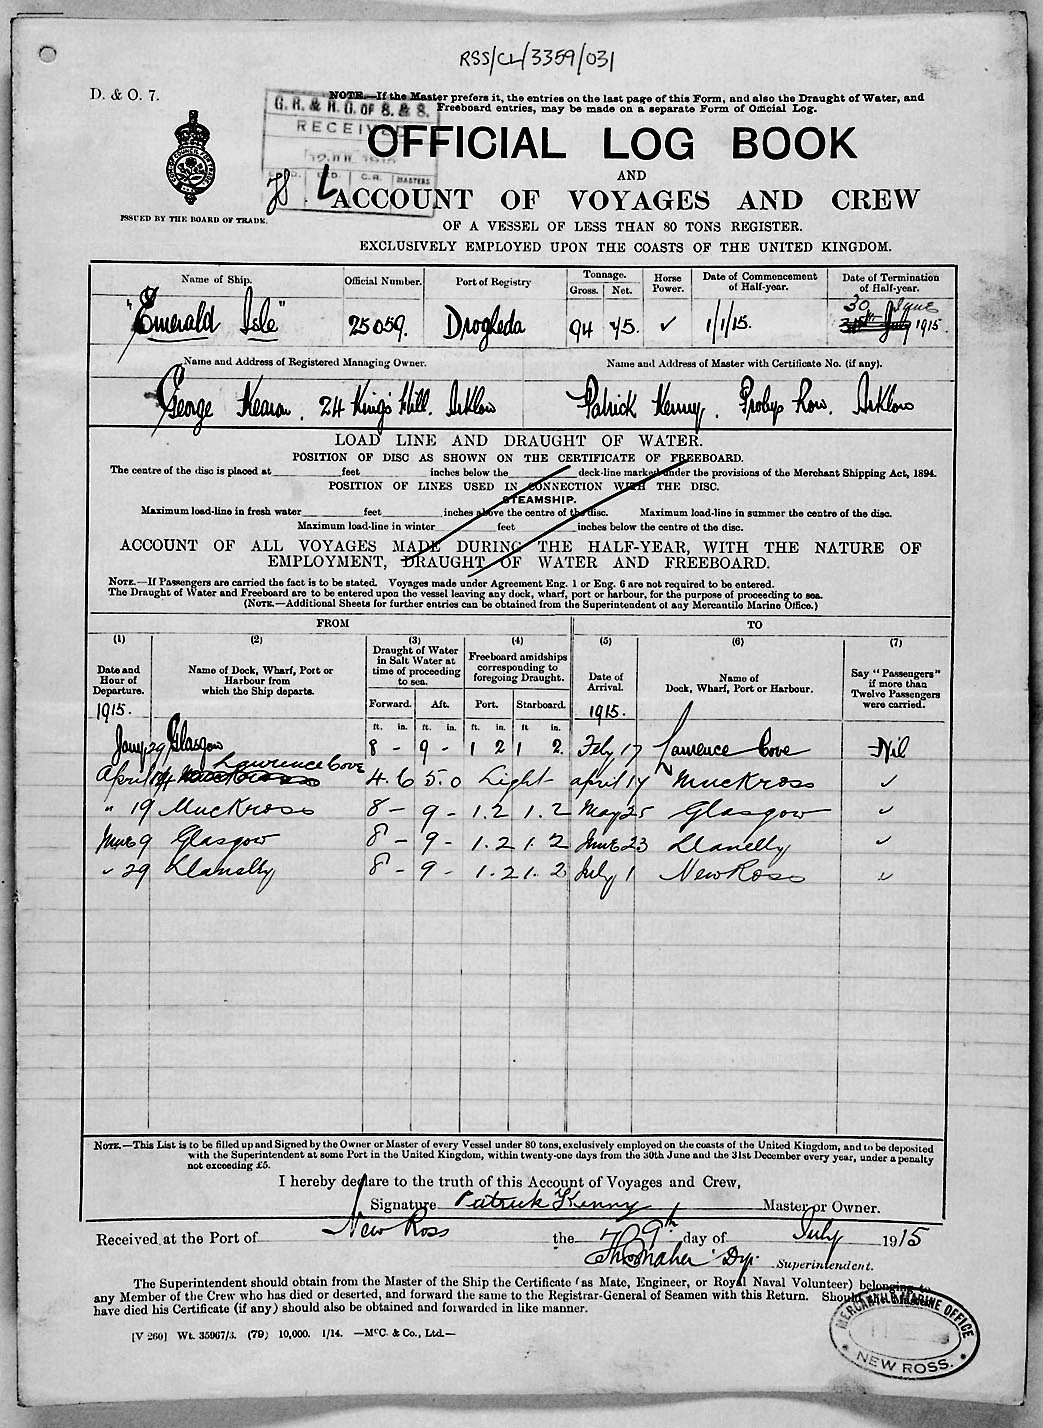 RSS/CL/3359/031
D. & O. 7.
NOTE.—If the Master prefers it, the entries on the last page of this Form, and also the Draught of Water, and
Freeboard entries, may be made on a separate Form of Official Log.
G. R. & R. G. OF S. & S.
RECEIVED
C.R. MASTERS
OFFICIAL LOG BOOK
AND
ACCOUNT OF VOYAGES AND CREW
ISSUED BY THE BOARD OF TRADE.
OF A VESSEL OF LESS THAN 80 TONS REGISTER.
EXCLUSIVELY EMPLOYED UPON THE COASTS OF THE UNITED KINGDOM.
Name of Ship. Official Number. Port of Registry Tonnage. Gross. Net. Horse Power. Date of Commencement of Half-year. Date of Termination of Half-year.
"Emerald Isle" 25059. Drogheda 94 45. ✓ 1/1/15. 30 June 1915.
Name and Address of Registered Managing Owner. Name and Address of Master with Certificate No. (if any).
George Kearon. 24 King's Hill. Arklow Patrick Kenny. Probys Row. Arklow
LOAD LINE AND DRAUGHT OF WATER.
POSITION OF DISC AS SHOWN ON THE CERTIFICATE OF FREEBOARD.
The centre of the disc is placed at feet inches below the deck-line marked under the provisions of the Merchant Shipping Act, 1894.
POSITION OF LINES USED IN CONNECTION WITH THE DISC.
STEAMSHIP.
Maximum load-line in fresh water feet inches above the centre of the disc. Maximum load-line in summer the centre of the disc.
Maximum load-line in winter feet inches below the centre of the disc.
ACCOUNT OF ALL VOYAGES MADE DURING THE HALF-YEAR, WITH THE NATURE OF
EMPLOYMENT, DRAUGHT OF WATER AND FREEBOARD.
NOTE.—If Passengers are carried the fact is to be stated. Voyages made under Agreement Eng. 1 or Eng. 6 are not required to be entered.
The Draught of Water and Freeboard are to be entered upon the vessel leaving any dock, wharf, port or harbour, for the purpose of proceeding to sea.
(NOTE.—Additional Sheets for further entries can be obtained from the Superintendent of any Mercantile Marine Office.)
FROM TO
(1) (2) (3) (4) (5) (6) (7)
Date and Hour of Departure. Name of Dock, Wharf, Port or Harbour from which the Ship departs. Draught of Water in Salt Water at time of proceeding to sea. Freeboard amidships corresponding to foregoing Draught. Date of Arrival. Name of Dock, Wharf, Port or Harbour. Say "Passengers" if more than Twelve Passengers were carried.
Forward. Aft. Port. Starboard.
1915. 1915.
ft. in. ft. in. ft. in. ft in.
Jany 29 Glasgow 8 - 9 - 1 2 1 2. Feby 17 Lawrence Cove Nil
April 14 Lawrence Cove 4.6 5.0 Light april 17 Muckross ✓
" 19 Muckross 8 - 9 - 1.2 1.2 May 25 Glasgow ✓
June 9 Glasgow 8 - 9 - 1.2 1.2 June 23 Llanelly ✓
" 29 Llanelly 8 - 9 - 1.2 1.2 July 1 New Ross ✓
NOTE.—This List is to be filled up and Signed by the Owner or Master of every Vessel under 80 tons, exclusively employed on the coasts of the United Kingdom, and to be deposited
with the Superintendent at some Port in the United Kingdom, within twenty-one days from the 30th June and the 31st December every year, under a penalty
not exceeding £5.
I hereby declare to the truth of this Account of Voyages and Crew,
Signature Patrick Kenny Master or Owner.
Received at the Port of New Ross the 9th day of July 1915
Dy. Superintendent.
The Superintendent should obtain from the Master of the Ship the Certificate (as Mate, Engineer, or Royal Naval Volunteer) belonging to
any Member of the Crew who has died or deserted, and forward the same to the Registrar-General of Seamen with this Return. Should
have died his Certificate (if any) should also be obtained and forwarded in like manner.
[V 260] Wt. 35967/3. (79) 10,000. 1/14. —McC. & Co., Ltd.—
MERCANTILE MARINE OFFICE
NEW ROSS.